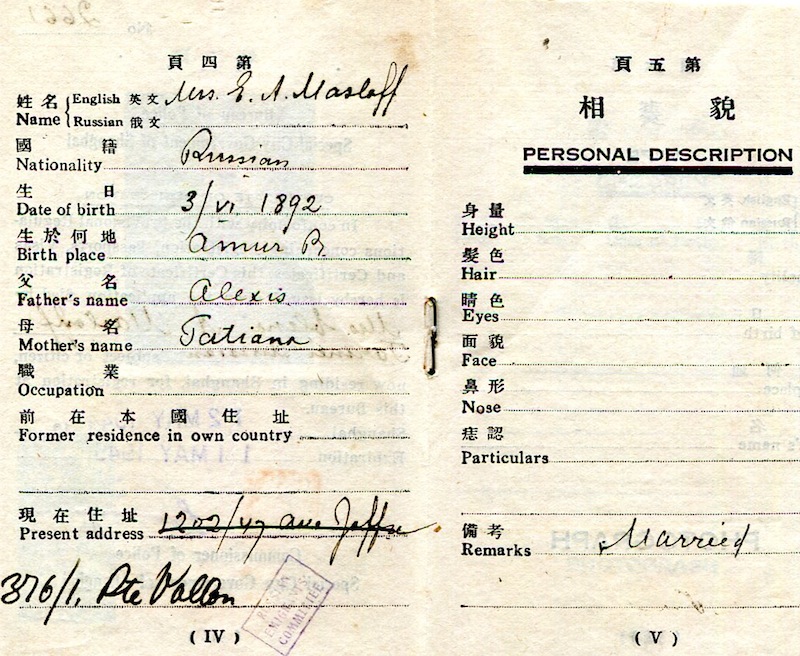 第四頁
姓名 English 英文 Mrs. E. A. Masloff
Name Russian 俄文
國籍
Nationality Russian
生日
Date of birth 3/VI 1892
生於何地
Birth place Amur R.
父名
Father's name Alexis
母名
Mother's name Tatiana
職業
Occupation
前在本國住址
Former residence in own country
現在住址
Present address 1202/47 Ave Joffre
376/1, Rte Vallon
COMMITTEE
(IV)
第五頁
相貌
PERSONAL DESCRIPTION
身量
Height
髮色
Hair
睛色
Eyes
面貌
Face
鼻形
Nose
痣認
Particulars
備考
Remarks Married
(V)